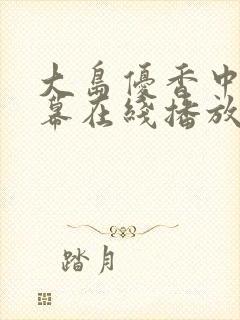 大島優香中
幕在綫播放
踏月